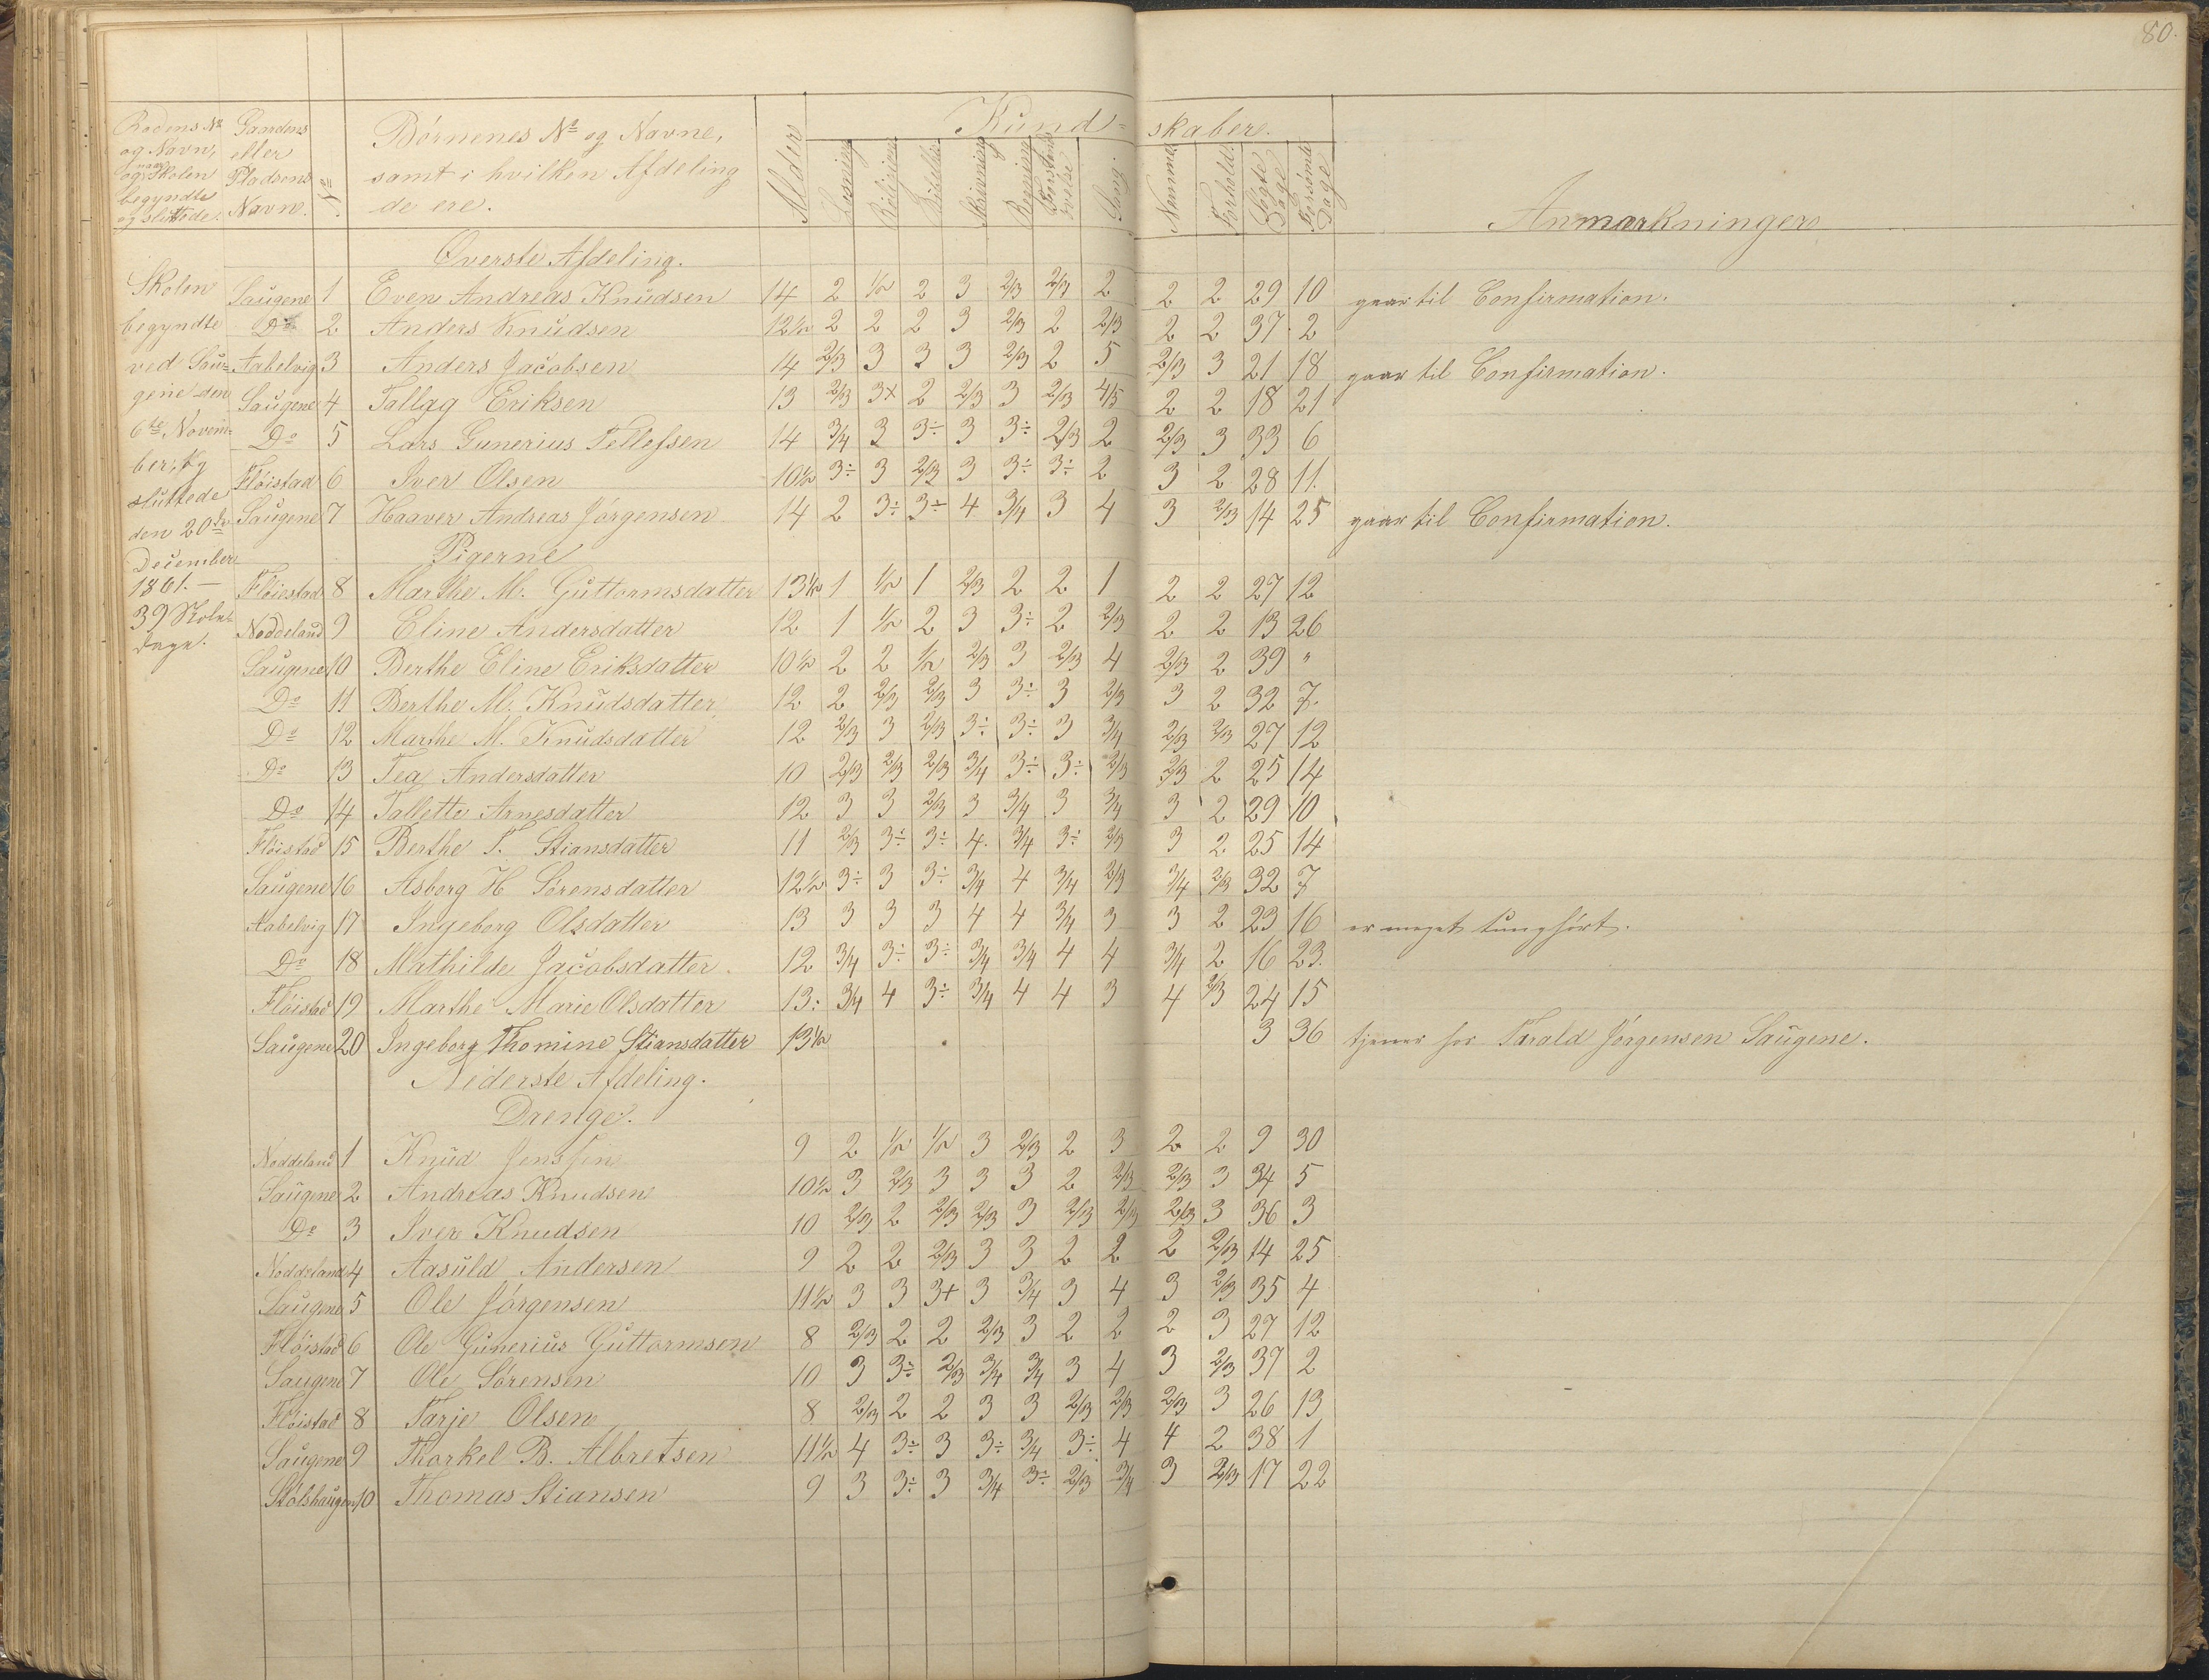 80.
Rodens No og Navn, og naar Skolen begyndte og sluttede.
Gaardens eller Pladsens Navne.
No
Børnenes No og Navne, samt i hvilken Afdeling de ere.
Alder
Kund-skaber.
Læsning
Religion
Bibelhi
Skrivning
Regning
Forstands øvelse
Sang.
Nemme
Forhold.
Søgte Dage
Forsømte Dage
Anmærkninger
Skolen begyndte ved Saugene den 6te November, og sluttede den 20de December 1861. — 39 Skoledage.
Øverste Afdeling.
Saugene 1 Even Andreas Knudsen 14 2 1/2 2 3 2/3 2/3 2 2 2 29 10 gaar til Confirmation.
Do 2 Anders Knudsen 12½ 2 2 2 3 2/3 2 2/3 2 2 37 2
Aabelvig 3 Anders Jacobsen 14 2/3 3 3 3 2/3 2 5 2/3 3 21 18 gaar til Confirmation.
Saugene 4 Tallag Eriksen 13 2/3 3+ 2 2/3 3 2/3 4/5 2 2 18 21
Do 5 Lars Gunerius Tellefsen 14 3/4 3 3÷ 3 3÷ 2/3 2 2/3 3 33 6
Fløistad 6 Iver Olsen 10½ 3÷ 3 2/3 3 3÷ 3÷ 2 3 2 28 11.
Saugene 7 Haaver Andreas Jørgensen 14 2 3÷ 3÷ 4 3/4 3 4 3 2/3 14 25 gaar til Confirmation.
Pigerne
Fløiestad 8 Marthe M. Guttormsdatter 13½ 1 1/2 1 2/3 2 2 1 2 2 27 12
Noddeland 9 Eline Andersdatter 12 1 1/2 2 3 3÷ 2 2/3 2 2 13 26
Saugene 10 Berthe Eline Eriksdatter 10½ 2 2 1/2 2/3 3 2/3 4 2/3 2 39 "
Do 11 Berthe M. Knudsdatter 12 2 2/3 2/3 3 3÷ 3 2/3 3 2 32 7.
Do 12 Marthe M. Knudsdatter 12 2/3 3 2/3 3÷ 3÷ 3 3/4 2/3 2/3 27 12
Do 13 Tea Andersdatter 10 2/3 2/3 2/3 3/4 3÷ 3÷ 2/3 2/3 2 25 14
Do 14 Tallette Arnesdatter 12 3 3 2/3 3 3/4 3 3/4 3 2 29 10
Fløistad 15 Berthe T. Stiansdatter 11 2/3 3÷ 3÷ 4. 3/4 3÷ 2/3 3 2 25 14
Saugene 16 Asborg H Sørensdatter 12½ 3÷ 3 3÷ 3/4 4 3/4 2/3 3/4 2/3 32 7
Aabelvig 17 Ingeborg Olsdatter 13 3 3 3 4 4 3/4 3 3 2 23 16 er meget tunghørt.
Do 18 Mathilde Jacobsdatter. 12 3/4 3÷ 3÷ 3/4 3/4 4 4 3/4 2 16 23.
Fløistad 19 Marthe Marie Olsdatter 13. 3/4 4 3÷ 3/4 4 4 3 4 2/3 24 15
Saugene 20 Ingeborg Thomine Stiansdatter 13½ 3 36 tjener hos Tarald Jørgensen Saugene.
Nederste Afdeling.
Drenge.
Noddeland 1 Knud Jenssen 9 2 1/2 1/2 3 2/3 2 3 2 2 9 30
Saugene 2 Andreas Knudsen 10½ 3 2/3 3 3 3 2 2/3 2/3 3 34 5
Do 3 Iver Knudsen 10 2/3 2 2/3 2/3 3 2/3 2/3 2/3 3 36 3
Noddeland 4 Aasuld Andersen 9 2 2 2/3 3 3 2 2 2 2/3 14 25
Saugene 5 Ole Jørgensen 11½ 3 3 3+ 3 3/4 3 4 3 2/3 35 4
Fløistad 6 Ole Gunerius Guttormsen 8 2/3 2 2 2/3 3 2 2 2 3 27 12
Saugene 7 Ole Sørensen 10 3 3÷ 2/3 3/4 3/4 3 4 3 2/3 37 2
Fløistad 8 Tarje Olsen 8 2/3 2 2 3 3 2/3 2/3 2/3 3 26 13
Saugene 9 Thorkel B. Albretsen 11½ 4 3÷ 3 3÷ 3/4 3÷ 4 4 2 38 1
Stølshaugen 10 Thomas Stiansen 9 3 3÷ 3 3/4 3÷ 2/3 3/4 3 2/3 17 22